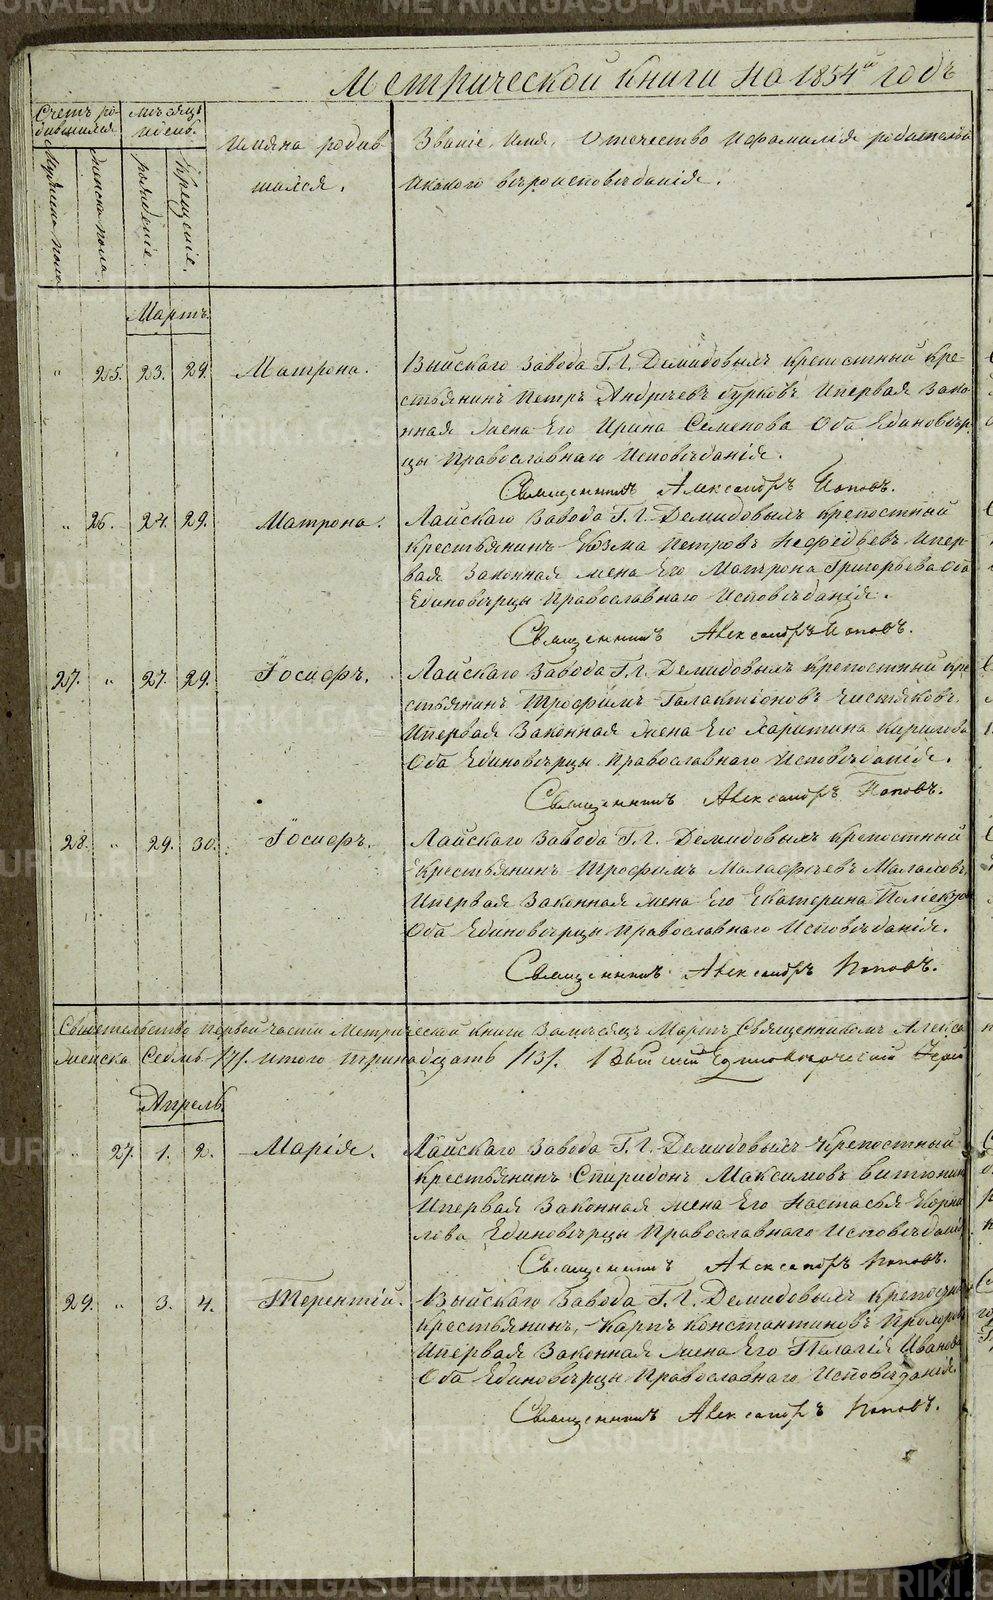 Метрической книги на 1854й годъ
Счетъ ро-
дившихся
мѣсяцъ
и день.
Мужеска пола
Женска пола
рожденія.
Крещенія.
Имяна родив
шихся.
Званіе, Имя, Отечество и фамилія родителей
и какого вѣроисповѣданія.
Мартъ.
" 25. 23. 29. Матрона. Выйскаго Завода Г.Г. Демидовыхъ крепостный кре-
стьянинъ Петръ Андрѣевъ Гурковъ и первая Зако-
нная жена Его Ирина Семенова Оба Единовѣр-
цы Православнаго Исповѣданія.
Священникъ Александръ Поповъ.
" 26. 24. 29. Матрона. Лайскаго Завода Г.Г. Демидовыхъ крепостный
крестьянинъ Козма Петровъ Нефедьевъ и пер-
вая Законная жена Его Матрона Григорьева Оба
Единовѣрцы Православнаго Исповѣданія.
Священникъ Александръ Поповъ.
27. " 27. 29. Іосифъ. Лайскаго Завода Г.Г. Демидовыхъ крепостный кре
стьянинъ Трофимъ Галактіоновъ Чистяковъ
и первая Законная жена Его Харитина Кирилова
Оба Единовѣрцы Православнаго Исповѣданія.
Священникъ Александръ Поповъ.
28. " 29. 30. Іосифъ. Лайскаго Завода Г.Г. Демидовыхъ крепостный
крестьянинъ Трофимъ Малафѣевъ
и первая Законная жена Его Екатерина
Оба Единовѣрцы Православнаго Исповѣданія.
Священникъ Александръ Поповъ.
Свидетельство первой части Метрической книги За мѣсяцъ Мартъ Священникомъ Алекса
женска Седмь /7/. итого тринадцать /13/.
Апрель
" 27. 1. 2. Марія. Лайскаго Завода Г.Г. Демидовыхъ крепостный
крестьянинъ Спиридонъ Максимовъ
и первая Законная жена Его Настасья Корни
лова Единовѣрцы Православнаго Исповѣданія
Священникъ Александръ Поповъ.
29. " 3. 4. Терентій. Выйскаго Завода Г.Г. Демидовыхъ крепостный
крестьянинъ, Карпъ Константиновъ
и первая Законная жена Его Пелагія Иванов
Оба Единовѣрцы Православнаго Исповѣданія
Священникъ Александръ Поповъ.
METRIKI.GASO-URAL.RU